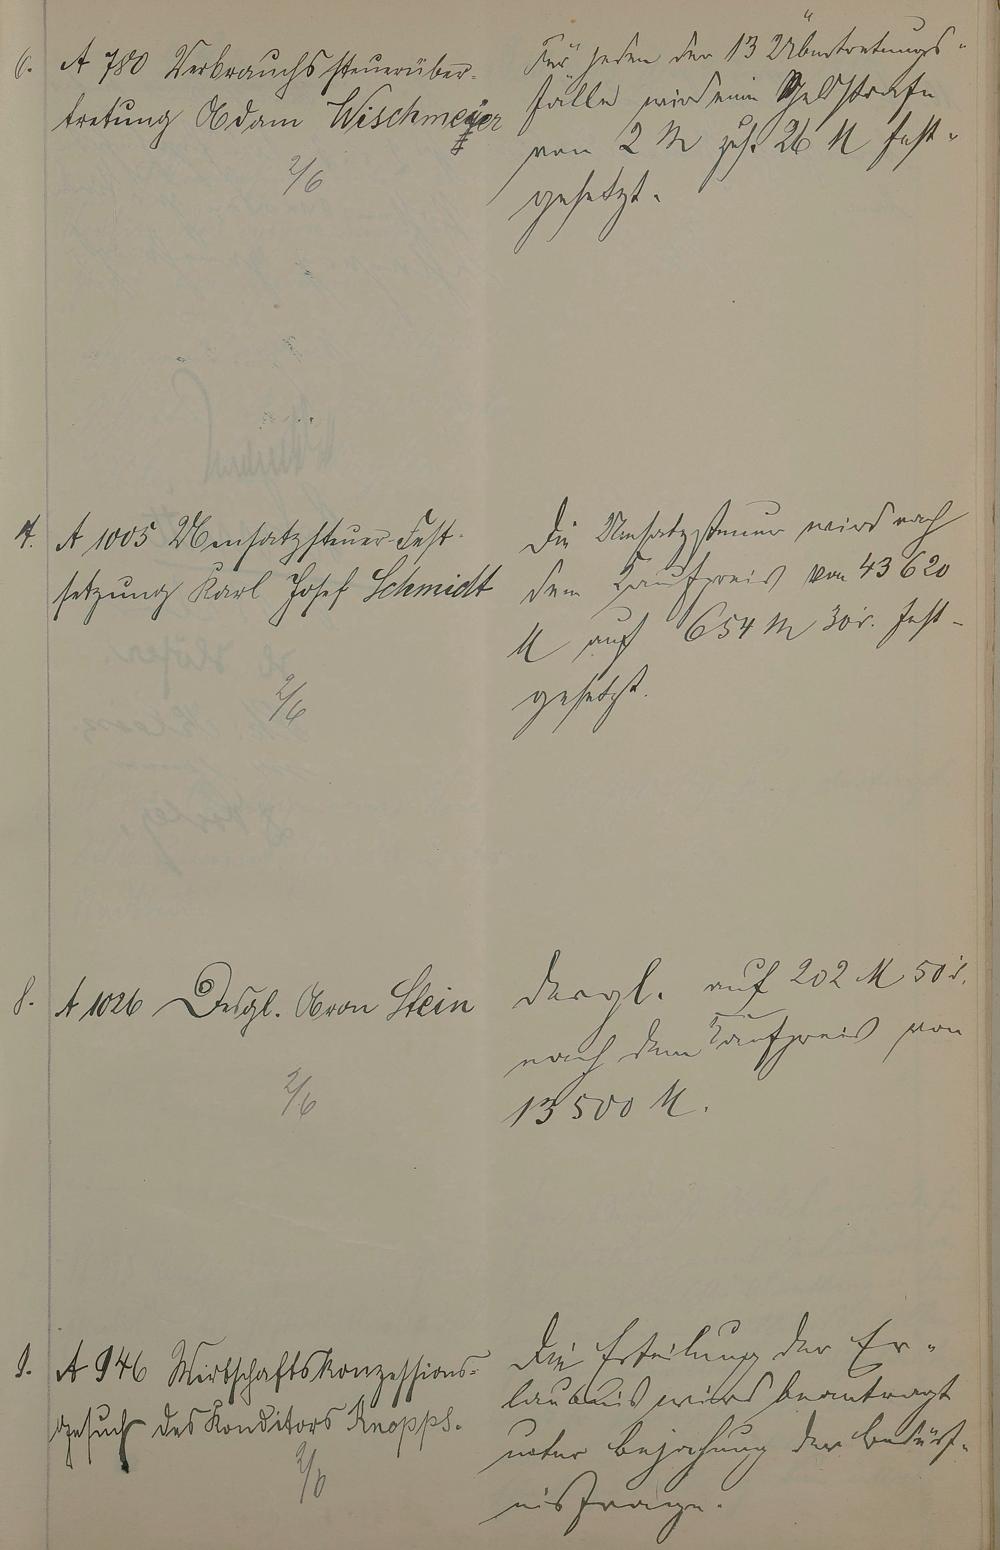 6. A 780 Verbrauchssteuerüber-
tretung Adam Wischmeyer
2/6
Für jeden der 13 Übertretungs-
fälle wird eine Geldstrafe
von 2 M zus. 26 M fest-
gesetzt.
7. A 1005 Umsatzsteuer-Fest-
setzung Karl Josef Schmidt
2/6
Die Umsatzsteuer wird nach
dem Kaufpreis von 43 620
M auf 654 M 30 fest-
gesetzt.
8. A 1026 Desgl. Aron Stein
2/6
Desgl. auf 202 M 50
nach dem Kaufpreis von
13 500 M.
9. A 946 Wirtschaftskonzessions-
gesuch des Konditors Knopps.
2/6
Die Erteilung der Er-
laubnis wird beantragt
unter Bejahung der Bedürf-
nisfrage.